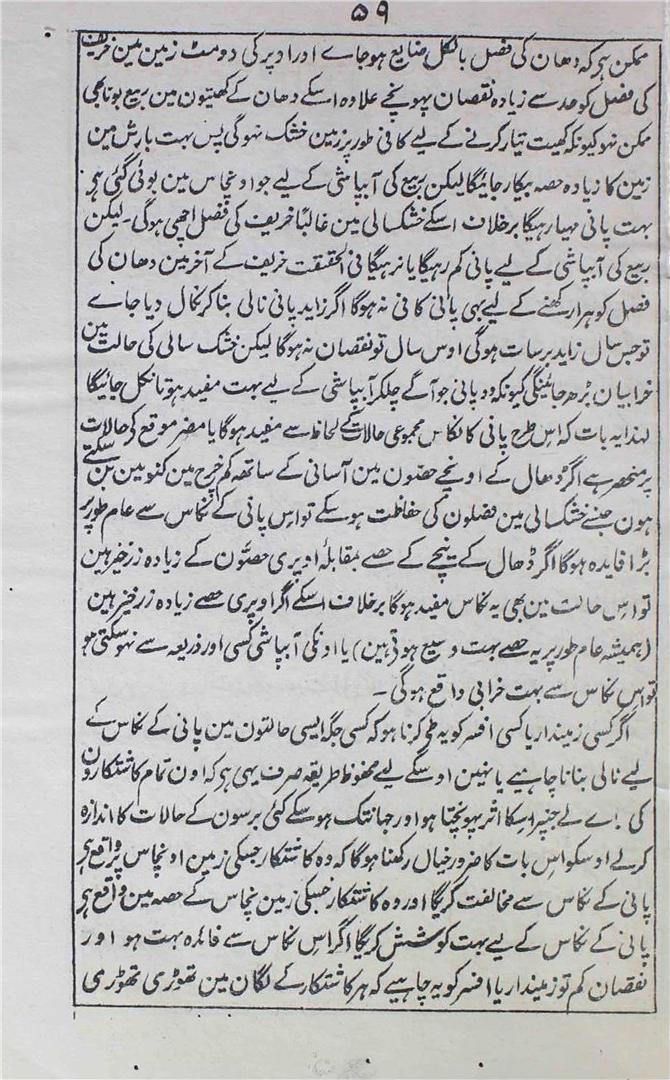 ۵۹
ممکن ہی کہ دھان کی فصل بالکل ضایع ہوجاے اور اوپر کی دومٹ زمین مین خریف
کی فصل کو حد سے زیادہ نقصان پہونچے علاوہ اسکے دھان کے کھیتون مین ربیع بونا بھی
ممکن نہو کیونکہ کھیت تیار کرنے کے لیے کافی طور پر زمین خشک نہوگی پس بہت بارش مین
زمین کا زیادہ حصہ بیکار جائیگا لیکن ربیع کی آبپاشی کے لیے جو اونچاس مین بوئی گئی ہی
بہت پانی مہیا رہیگا برخلاف اسکے خشکسالی مین غالباً خریف کی فصل اچھی ہوگی۔ لیکن
ربیع کی آبپاشی کے لیے پانی کم رہیگا یا نرہیگا فی الحقیقت خریف کے آخر مین دھان کی
فصل کو ہرا رکھنے کے لیے بہی پانی کافی نہ ہوگا اگر زاید پانی نالی بنا کر نکال دیا جاے
تو جس سال زاید برسات ہوگی اوس سال تو نقصان نہ ہوگا لیکن خشک سالی کی حالت مین
خرابیان بڑھ جائینگی کیونکہ وہ پانی جو آگے چلکر آبپاشی کے لیے بہت مفید ہوتا نکل جائیگا
لہذا یہ بات کہ اس طرح پانی کا نکاس مجموعی حالات کے لحاظ سے مفید ہوگا یا مضر موقع کی حالات
پر منحصر ہے اگر ڈھال کے اونچے حصون مین آسانی کے ساتھ کم خرچ مین کنوین بن سکتے
ہون جنسے خشکسالی مین فصلون کی حفاظت ہوسکے تو اس پانی کے نکاس سے عام طور پر
بڑا فایدہ ہوگا اگر ڈھال کے نیچے کے حصے بمقابلۂ اوپری حصّون کے زیادہ زرخیز ہین
تو اس حالت مین بھی یہ نکاس مفید ہوگا برخلاف اسکے اگر اوپری حصے زیادہ زرخیز ہین
(ہمیشہ عام طور پر یہ حصے بہت وسیع ہوتے ہین) یا اونکی آبپاشی کسی اور ذریعہ سے نہوسکتی ہو
تو اس نکاس سے بہت خرابی واقع ہوگی۔
اگر کسی زمیندار یا کسی افسر کو یہ طے کرنا ہو کہ کسی جگہ ایسی حالتون مین پانی کے نکاس کے
لیے نالی بنانا چاہیے یا نہین اوسکے لیے محفوظ طریقہ صرف یہی ہی کہ اون تمام کاشتکارون
کی راے لے جنپر اسکا اثر پہونچتا ہو اور جہانتک ہوسکے کئی برسون کے حالات کا اندازہ
کرلے اوسکو اس بات کا ضرور خیال رکھنا ہوگا کہ وہ کاشتکار جسکی زمین اونچاس پر واقع ہی
پانی کے نکاس سے مخالفت کریگا اور وہ کاشتکار جسکی زمین نچاس کے حصہ مین واقع ہی
پانی کے نکاس کے لیے بہت کوشش کریگا اگر اس نکاس سے فائدہ بہت ہو اور
نقصان کم تو زمیندار یا افسر کو یہ چاہیے کہ ہر کاشتکار کے لگان مین تھوڑی تھوڑی